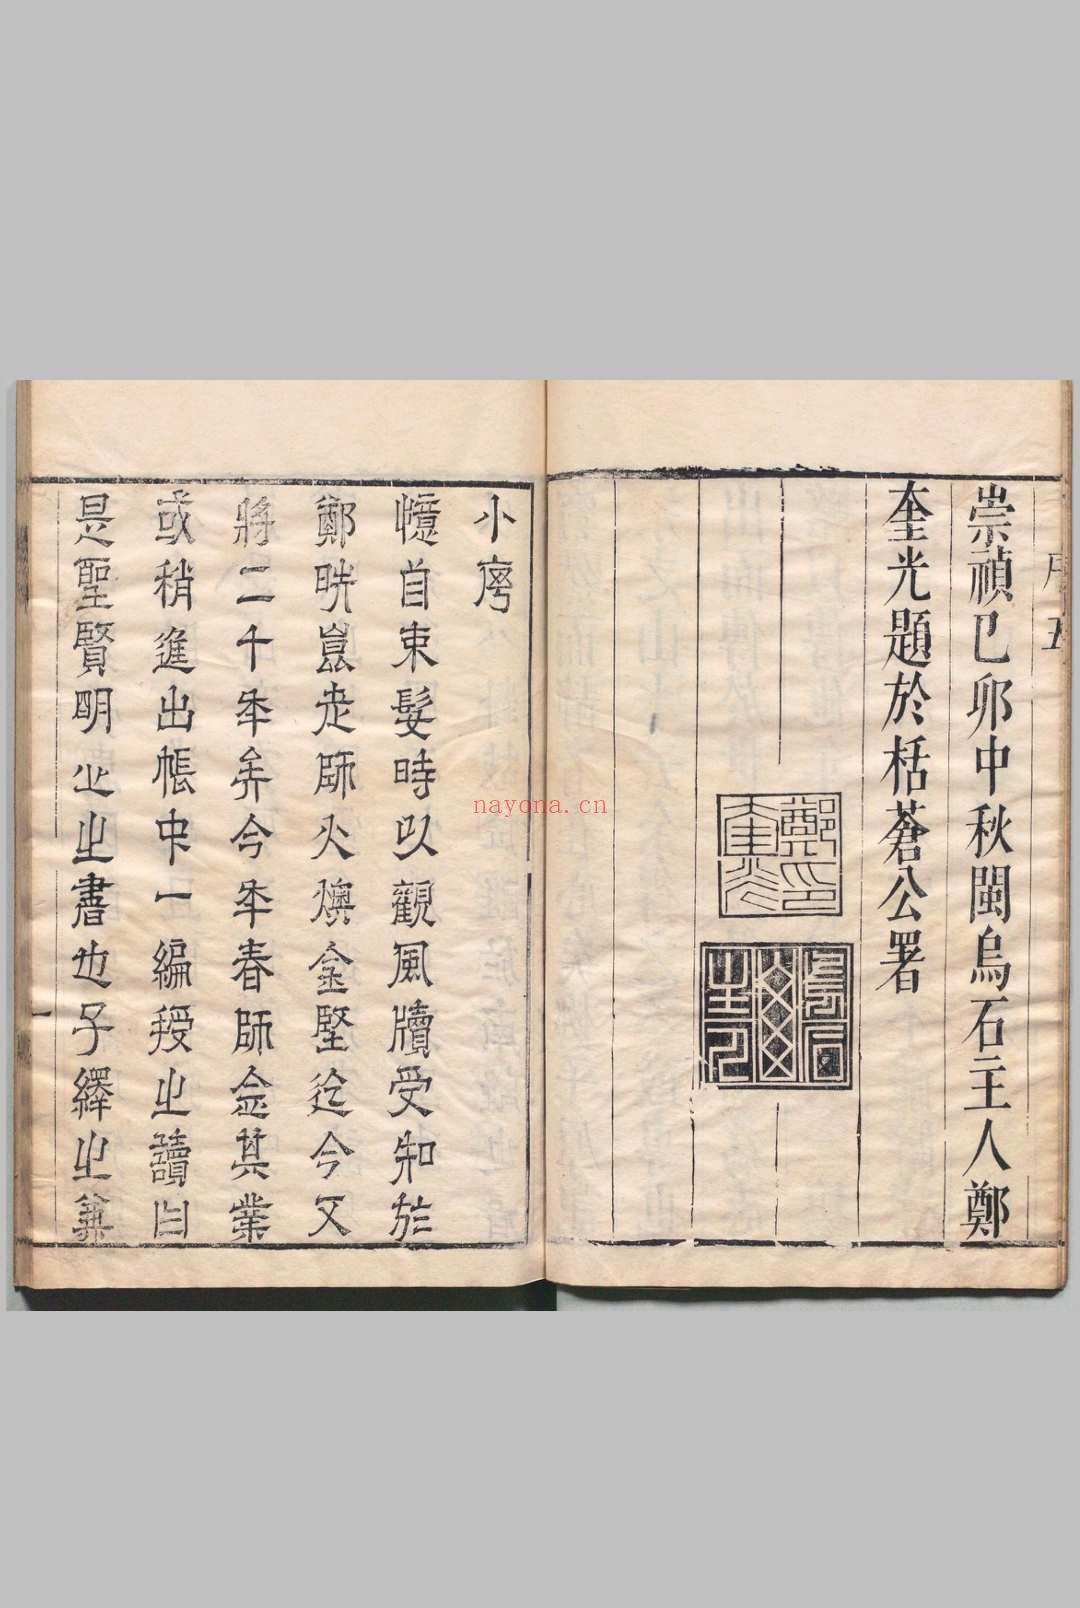 崇禎己卯中秋閩烏石主人鄭
奎光題於栝蒼公署
鄭印奎光
小序
憶自束髮時以觀風牘受知於
鄭晄崑老師火燠金堅迄今又
將二十年矣今年春師念其業
或稍進出帳中一編授之讀曰
是聖賢明心之書也子繹之兼
nayona.cn